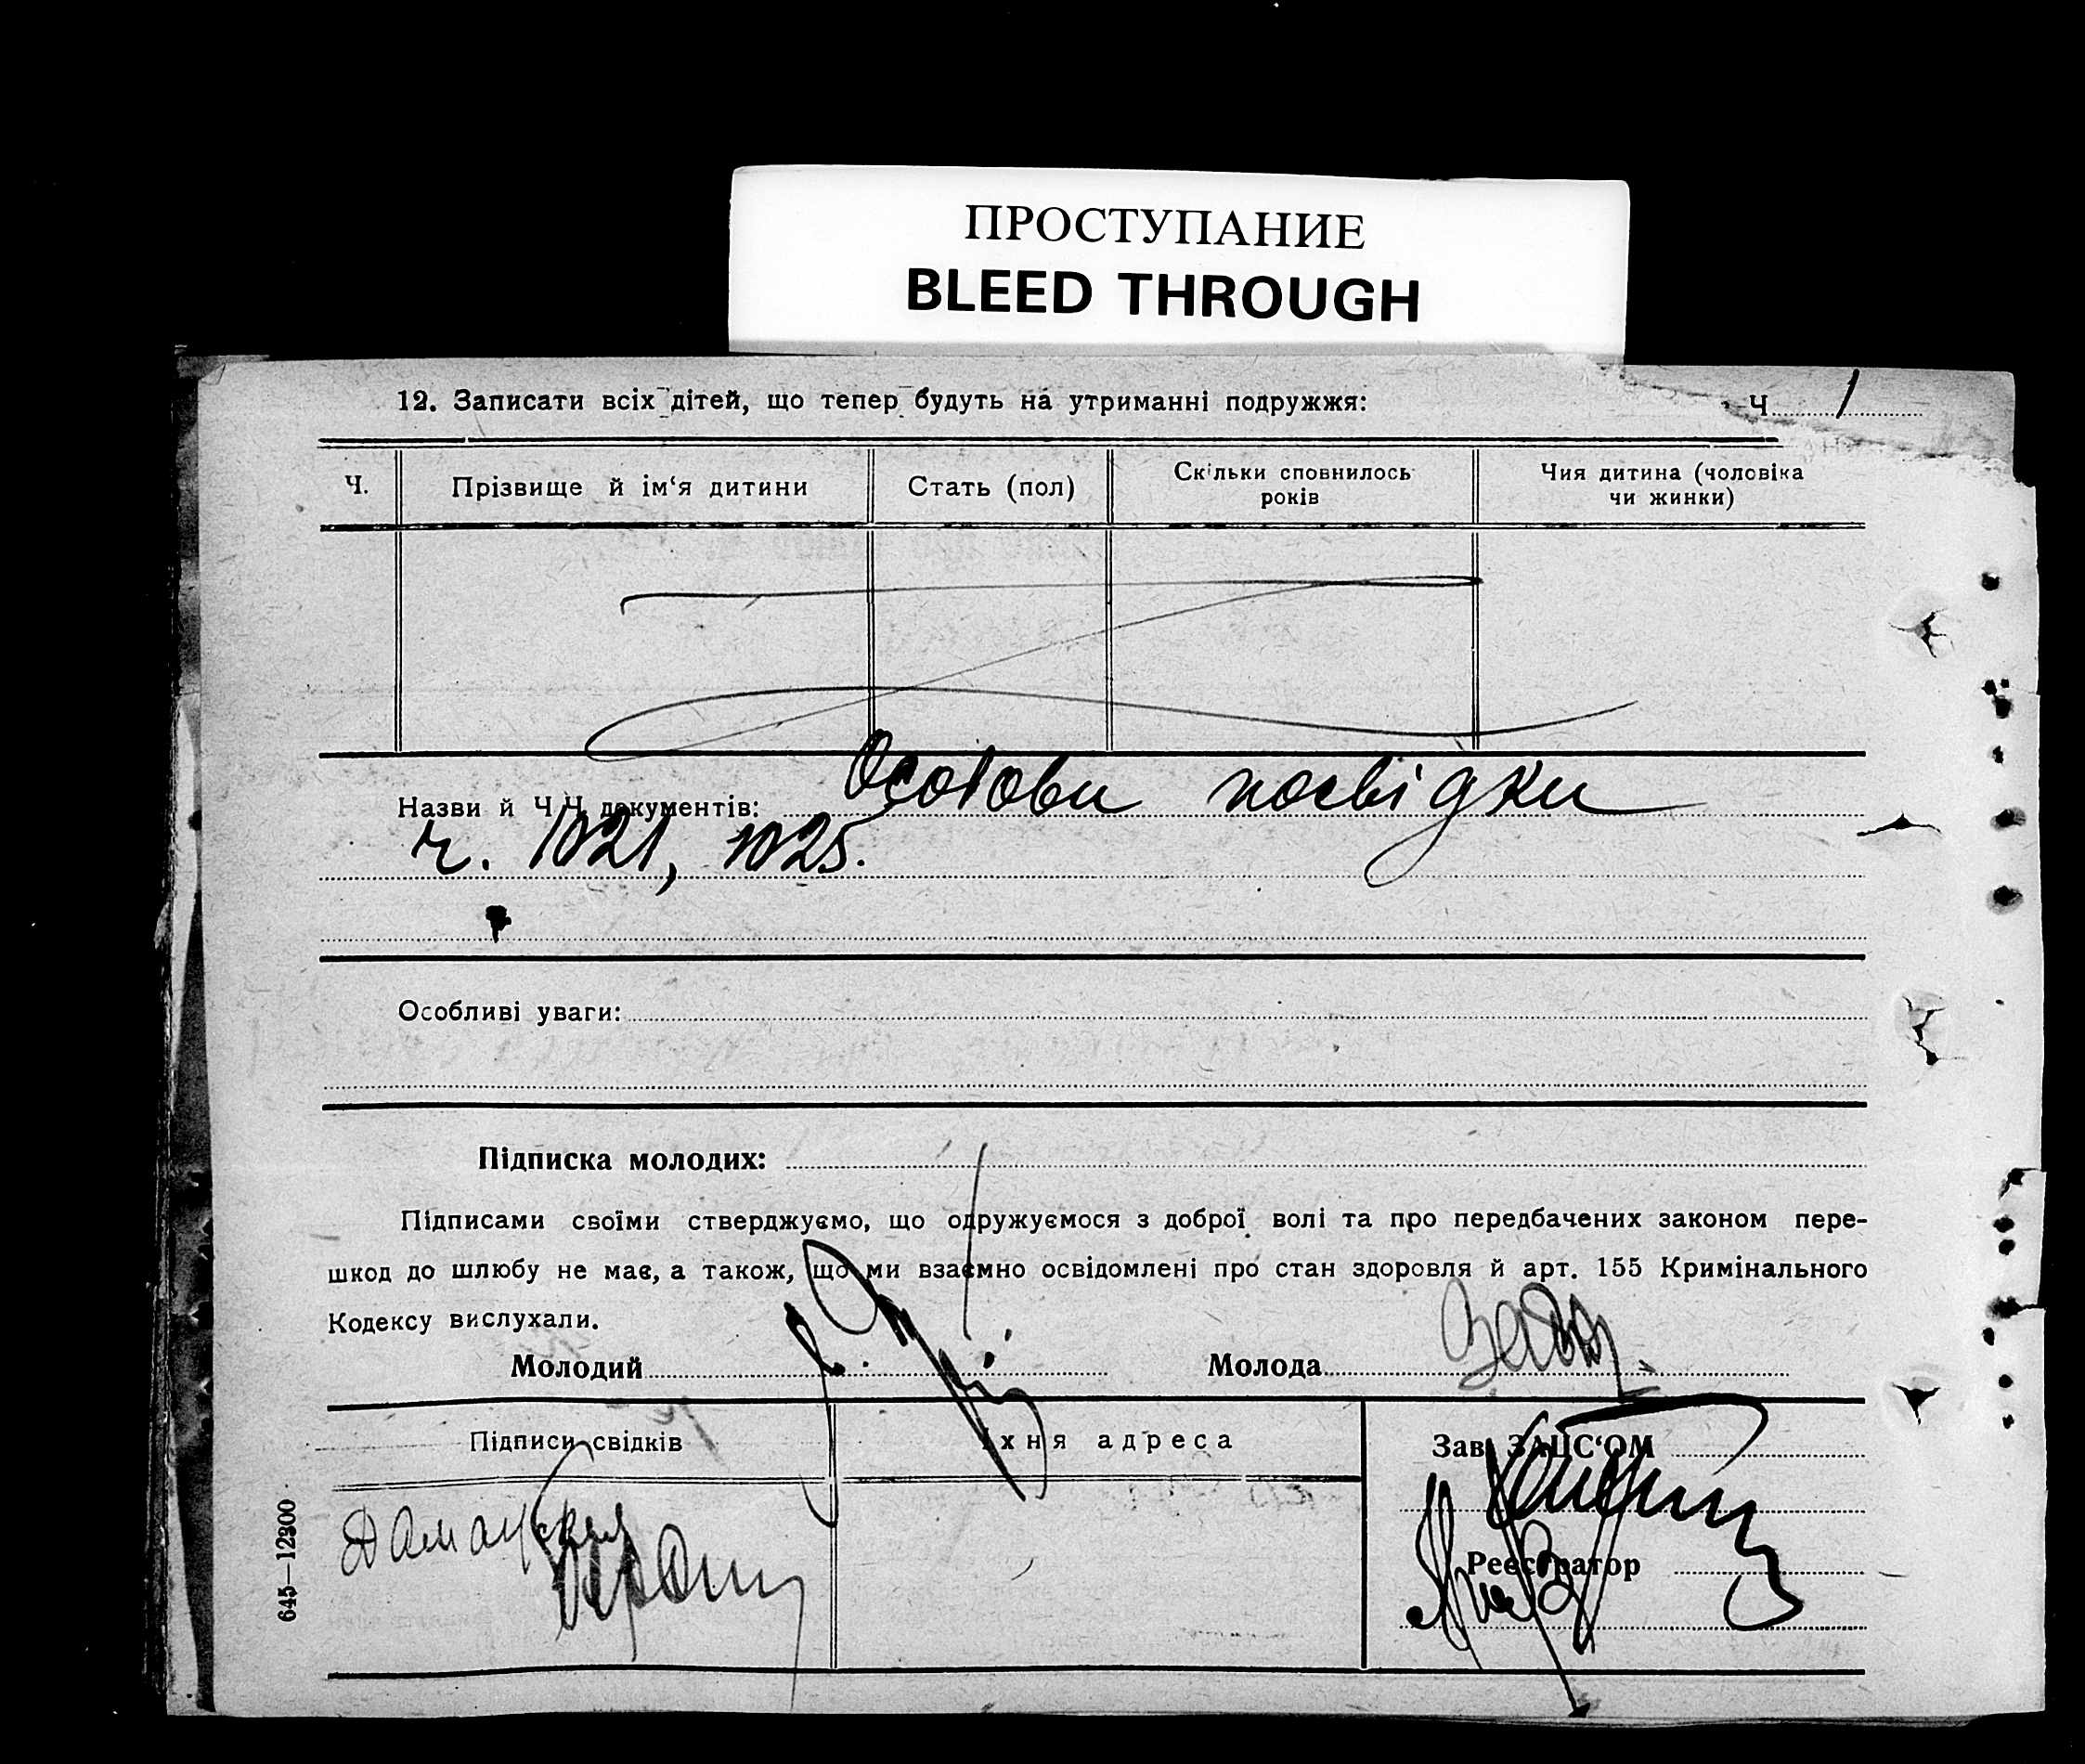 ПРОСТУПАНИЕ
BLEED THROUGH
12. Записати всіх дітей, що тепер будуть на утриманні подружжя:
Ч. 1
Ч.
Прізвище й ім‘я дитини
Стать (пол)
Скільки сповнилось
років
Чия дитина (чоловіка
чи жинки)
Назви й Ч.Ч. документів: Особови посвідки
ч. 1021, 1025.
Особливі уваги:
Підписка молодих:
Підписами своїми стверджуємо, що одружуємося з доброї волі та про передбачених законом пере-
шкод до шлюбу не має, а також, що ми взаємно освідомлені про стан здоровля й арт. 155 Кримінального
Кодексу вислухали.
Молодий
Молода
Підписи свідків
Їхня адреса
Зав. ЗАПС‘ОМ
Реєстратор
645—12300